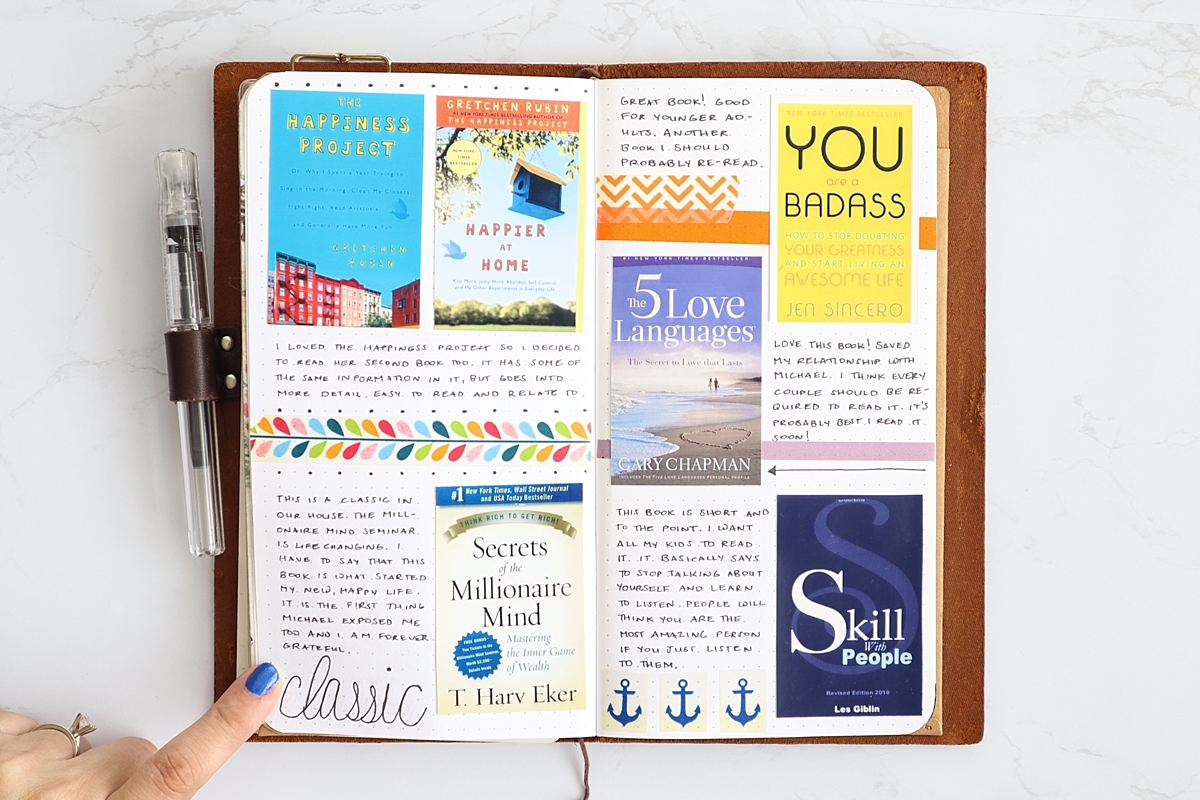 THE
HAPPINESS
PROJECT
Or, Why I Spent a Year Trying to
Sing in the Morning, Clean My Closets
Fight Right, Read Aristotle
and Generally Have More Fun
GRETCHEN
RUBIN
GRETCHEN RUBIN
#1 NEW YORK TIMES BESTSELLING AUTHOR OF
THE HAPPINESS PROJECT
NEW YORK
TIMES
BESTSELLER
HAPPIER
AT
HOME
Kiss More, Jump More, Abandon Self-Control,
and My Other Experiments in Everyday Life
I LOVED THE HAPPINESS PROJECT SO I DECIDED
TO READ HER SECOND BOOK TOO. IT HAS SOME OF
THE SAME INFORMATION IN IT, BUT GOES INTO
MORE DETAIL. EASY TO READ AND RELATE TO.
THIS IS A CLASSIC IN
OUR HOUSE. THE MILL-
ONAIRE MIND SEMINAR
IS LIFE CHANGING. I
HAVE TO SAY THAT THIS
BOOK IS WHAT STARTED
MY NEW, HAPPY LIFE.
IT IS THE FIRST THING
MICHAEL EXPOSED ME
TOO AND I AM FOREVER
GRATEFUL.
classic
#1 New York Times, Wall Street Journal
and USA Today Bestseller
THINK RICH TO GET RICH!
Secrets
of the
Millionaire
Mind
FREE BONUS
Two Tickets to the
Millionaire Mind Seminar
Worth $2,590
Details Inside
Mastering
the Inner Game
of Wealth
T. Harv Eker
GREAT BOOK! GOOD
FOR YOUNGER AD-
ULTS. ANOTHER
BOOK I SHOULD
PROBABLY RE-READ.
NEW YORK TIMES BESTSELLER
YOU
are a
BADASS
HOW TO STOP DOUBTING
YOUR GREATNESS
AND START LIVING AN
AWESOME LIFE
JEN SINCERO
#1 NEW YORK TIMES BESTSELLER
The 5 Love
Languages
The Secret to Love that Lasts
GARY CHAPMAN
INCLUDES THE FIVE LOVE LANGUAGES PERSONAL PROFILE
LOVE THIS BOOK! SAVED
MY RELATIONSHIP WITH
MICHAEL. I THINK EVERY
COUPLE SHOULD BE RE-
QUIRED TO READ IT. IT'S
PROBABLY BEST I READ IT
SOON!
THIS BOOK IS SHORT AND
TO THE POINT. I WANT
ALL MY KIDS TO READ
IT. IT BASICALLY SAYS
TO STOP TALKING ABOUT
YOURSELF AND LEARN
TO LISTEN. PEOPLE WILL
THINK YOU ARE THE
MOST AMAZING PERSON
IF YOU JUST LISTEN
TO THEM.
Skill
With
People
Revised Edition 2010
Les Giblin